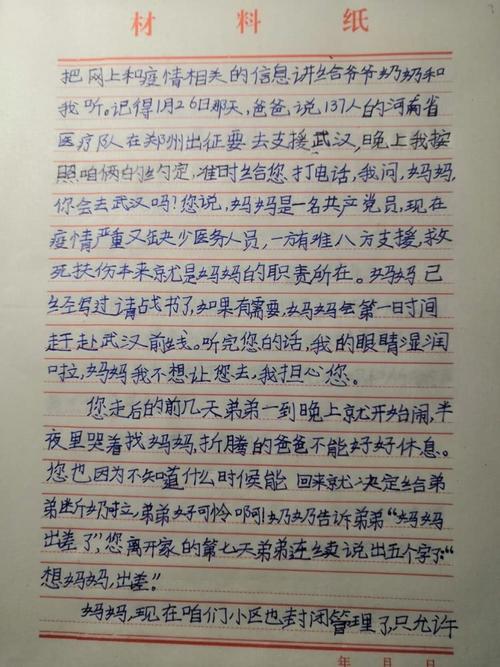 材料纸
把网上和疫情相关的信息讲给爷爷奶奶和
我听。记得1月26日那天,爸爸说137人的河南省
医疗队在郑州出征要去支援武汉,晚上我按
照咱俩的约定,准时给您打电话,我问,妈妈,
你会去武汉吗?您说,妈妈是一名共产党员,现在
疫情严重又缺少医务人员,一方有难八方支援,救
死扶伤本来就是妈妈的职责所在。妈妈已
经写过请战书了,如果有需要,妈妈会第一日时间
赶赴武汉前线。听完您的话,我的眼睛湿润
啦,妈妈我不想让您去,我担心您。
您走后的前几天弟弟一到晚上就开始闹,半
夜里哭着找妈妈,折腾的爸爸不能好好休息。
您也因为不知道什么时候能回来就决定给弟
弟断奶啦,弟弟好可怜啊!奶奶告诉弟弟“妈妈
出差了”,您离开家的第七天弟弟连续说出五个字了:“
想妈妈,出差!”
妈妈,现在咱们小区也封闭管理了,只允许
年月日